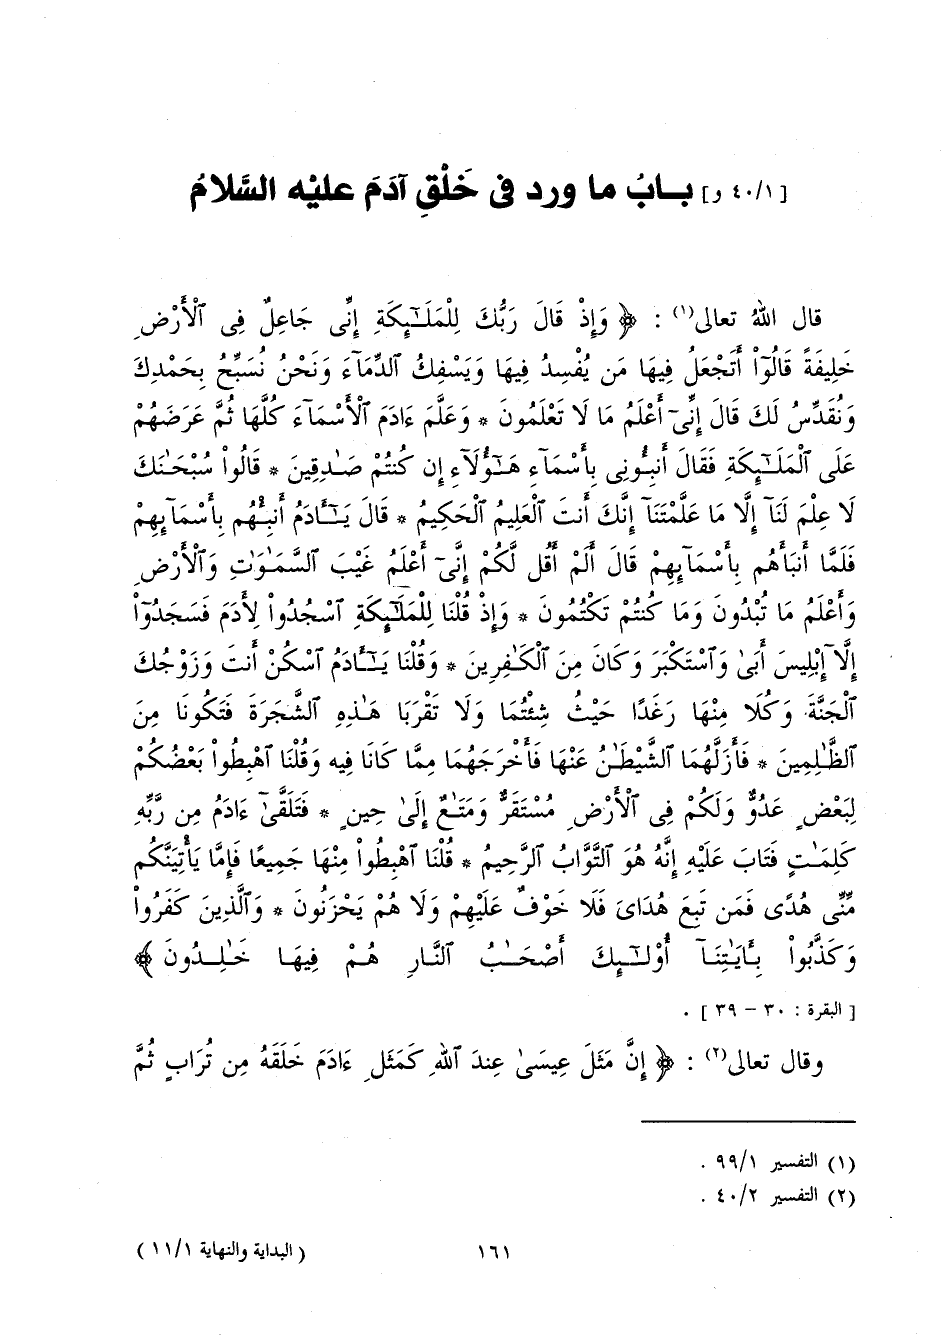 [ ٤٠/١ و] بابُ ما ورد فى خَلْقِ آدَمَ عليْه السَّلامُ
قال اللهُ تعالى(١) : ﴿ وَإِذْ قَالَ رَبُّكَ لِلْمَلَـٰٓئِكَةِ إِنِّى جَاعِلٌ فِى ٱلْأَرْضِ
خَلِيفَةً قَالُوٓا۟ أَتَجْعَلُ فِيهَا مَن يُفْسِدُ فِيهَا وَيَسْفِكُ ٱلدِّمَآءَ وَنَحْنُ نُسَبِّحُ بِحَمْدِكَ
وَنُقَدِّسُ لَكَ قَالَ إِنِّىٓ أَعْلَمُ مَا لَا تَعْلَمُونَ * وَعَلَّمَ ءَادَمَ ٱلْأَسْمَآءَ كُلَّهَا ثُمَّ عَرَضَهُمْ
عَلَى ٱلْمَلَـٰٓئِكَةِ فَقَالَ أَنۢبِـُٔونِى بِأَسْمَآءِ هَـٰٓؤُلَآءِ إِن كُنتُمْ صَـٰدِقِينَ * قَالُوا۟ سُبْحَـٰنَكَ
لَا عِلْمَ لَنَآ إِلَّا مَا عَلَّمْتَنَآ إِنَّكَ أَنتَ ٱلْعَلِيمُ ٱلْحَكِيمُ * قَالَ يَـٰٓـَٔادَمُ أَنۢبِئْهُم بِأَسْمَآئِهِمْ
فَلَمَّآ أَنۢبَأَهُم بِأَسْمَآئِهِمْ قَالَ أَلَمْ أَقُل لَّكُمْ إِنِّىٓ أَعْلَمُ غَيْبَ ٱلسَّمَـٰوَٰتِ وَٱلْأَرْضِ
وَأَعْلَمُ مَا تُبْدُونَ وَمَا كُنتُمْ تَكْتُمُونَ * وَإِذْ قُلْنَا لِلْمَلَـٰٓئِكَةِ ٱسْجُدُوا۟ لِـَٔادَمَ فَسَجَدُوٓا۟
إِلَّآ إِبْلِيسَ أَبَىٰ وَٱسْتَكْبَرَ وَكَانَ مِنَ ٱلْكَـٰفِرِينَ * وَقُلْنَا يَـٰٓـَٔادَمُ ٱسْكُنْ أَنتَ وَزَوْجُكَ
ٱلْجَنَّةَ وَكُلَا مِنْهَا رَغَدًا حَيْثُ شِئْتُمَا وَلَا تَقْرَبَا هَـٰذِهِ ٱلشَّجَرَةَ فَتَكُونَا مِنَ
ٱلظَّـٰلِمِينَ * فَأَزَلَّهُمَا ٱلشَّيْطَـٰنُ عَنْهَا فَأَخْرَجَهُمَا مِمَّا كَانَا فِيهِ وَقُلْنَا ٱهْبِطُوا۟ بَعْضُكُمْ
لِبَعْضٍ عَدُوٌّ وَلَكُمْ فِى ٱلْأَرْضِ مُسْتَقَرٌّ وَمَتَـٰعٌ إِلَىٰ حِينٍ * فَتَلَقَّىٰٓ ءَادَمُ مِن رَّبِّهِ
كَلِمَـٰتٍ فَتَابَ عَلَيْهِ إِنَّهُ هُوَ ٱلتَّوَّابُ ٱلرَّحِيمُ * قُلْنَا ٱهْبِطُوا۟ مِنْهَا جَمِيعًا فَإِمَّا يَأْتِيَنَّكُم
مِّنِّى هُدًى فَمَن تَبِعَ هُدَاىَ فَلَا خَوْفٌ عَلَيْهِمْ وَلَا هُمْ يَحْزَنُونَ * وَٱلَّذِينَ كَفَرُوا۟
وَكَذَّبُوا۟ بِـَٔايَـٰتِنَآ أُو۟لَـٰٓئِكَ أَصْحَـٰبُ ٱلنَّارِ هُمْ فِيهَا خَـٰلِدُونَ ﴾
[ البقرة : ٣٠ – ٣٩ ] .
وقال تعالى(٢) : ﴿ إِنَّ مَثَلَ عِيسَىٰ عِندَ ٱللَّهِ كَمَثَلِ ءَادَمَ خَلَقَهُ مِن تُرَابٍ ثُمَّ
(١) التفسير ٩٩/١ .
(٢) التفسير ٤٠/٢ .
١٦١
( البداية والنهاية ١١/١ )